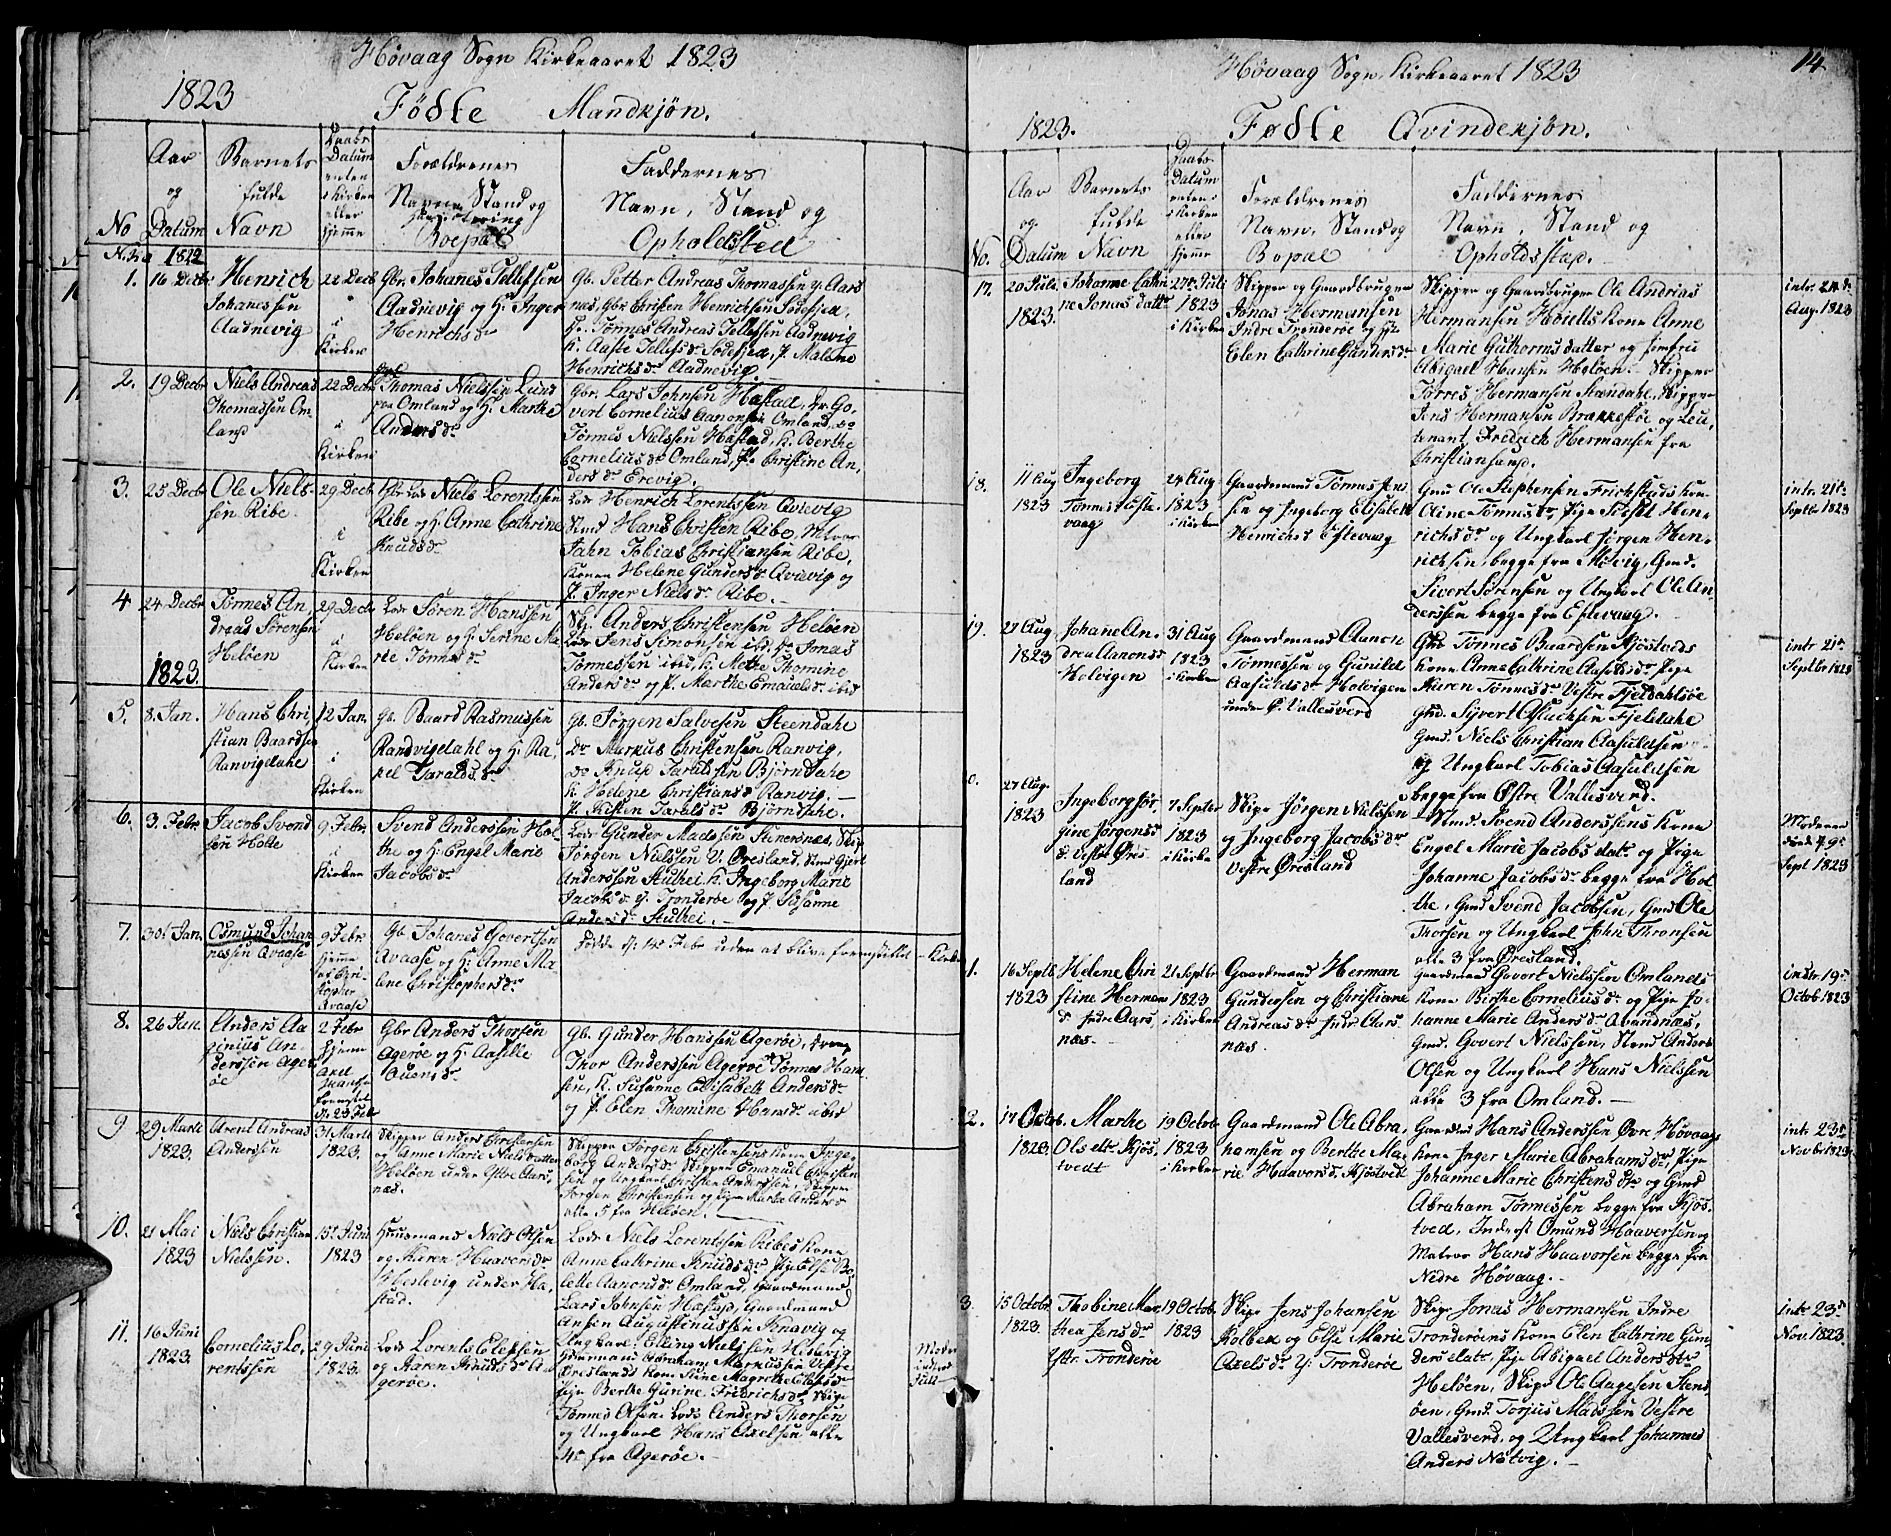 Høvaag Sogn Kirkeaaret 1823
1823
Fødte Mandkjøn.
No
Aar
og
Datum
Barnets
fulde
Navn
Daabs
Datum
enten
i Kirken
eller
hjemme
Forældrenes
Navne, Stand og
Boepæl
Faddernes
Navn, Stand og
Opholdssted
1822
1.
16 Decbr
Henrich
Johanessen
Aadnevig
22 Decb
i
Kirken
Gbr. Johanes Tellefsen
Aadnevig og H. Inger
Henrichsdr
Gb. Petter Andreas Thomassen y. Aars
nes, Gbr. Christen Henrichsen Sødefjed,
Do. Tønnes Andreas Tellefsen Aadnevig
K. Aaste Tellefsdr. Sødefjed, P. Malene
Henrichsdr Aadnevig
2.
19 Decbr
Niels Andreas
Thomassen Om-
land
22 Decbr
i
Kirken
Thomas Nielssen Lund
paa Omland og H. Marthe
Andersdr
Gbr. Lars Johnsen Hæstad, Gbr. Go-
vert Cornelius Aanonsen Omland, do
Tønnes Nielssen Hæstad, K. Berthe
Corneliusdr Omland, P. Christine An-
dersdr. Erevig.
3.
25 Decbr
Ole Niels-
sen Ribe
29 Decb
i
Kirken
Gbr Lods Niels Lorentssen
Ribe og H. Anne Cathrine
Knudsdr
Lods Henrich Lorentssen Qvievig
Hans Christen Ribe, Matros
Jahn Tobias Christiansen Ribe,
Konen Helene Gundersdr. Qvievig og
P. Inger Nielsdr Ribe.
4
24 Decbr
Tønnes An-
dreas Sørensen
Heløen
29 Decbr
i
Kirken
Lods Søren Hanssen
Heløen og H. Serine Ma-
rie Tønnesdr
Sk. Anders Christensen Heløen
Lods Jens Simonsen ibd. Do Jonas
Tønnessen ibid K. Mette Thomine
Andersdr og P. Marthe Emanuelsdr. ibid
1823.
5.
8. Jan.
Hans Chri-
stian Baardsen
Ranvigdahe
12 Jan.
i
Kirken
Gb. Baard Rasmussen
Randvigdahl og H. Ra-
kel Taraldsdr
Gb. Jørgen Salvesen Steendahe
Do Markus Christensen Ranvig,
Do Knud Taraldsen Bjørndahe
K. Helene Christiansdr Ranvig. —
P. Kirsten Taraldsdr Bjørndahe.
6.
3. Febr.
Jacob Svend
sen Holte
9 Febr.
i
Kirken
Svend Anderssen Hol-
the og H. Engel Marie
Jacobsdr
Lods Gunder Madssen Stenersnæs, Skip
Jørgen Nielssen V. Øresland, Gjert
Anderssen Stuthei. K. Ingeborg Marie
Jacobsdr y. Trønderøe og P. Susanne
Andersdr. Stuthei.
7.
30t Jan.
Osmund Johan
nessen Avaase
9 Febr
hjemme
af Chri-
stopher
Avaase
Gb. Johanes Govertsen
Avaase og H. Anne Ma-
lene Christophersdr
Døde d. 14 Febr uden at blive fremstillet i Kirken
8.
26 Jan.
Anders Aa
ginius An-
derssen Ager-
øe
2 Febr
hjemme
Axel
fremstil
d. 23 Feb
Gbr Anders Thorsen
Agerøe og H. Aasille
Ouensdr
Gb. Gunder Hanssen Agerøe,
Thor Anderssen Agerøe Tønnes Han-
sen, K. Susanne Elisabeth Andersdr
og P. Elen Thomine Hansdr ibid
9
29 Marti
1823
Arent Andreas
Anderssen
31 Marti
1823.
Skipper Anders Christensen
og Anne Marie Nielsdatter
Heløen under Østre Aars-
næs.
Skipper Jørgen Christensens Kone Inge-
borg Andersdr. Skipper Emanuel Christen
sen og Ungkarl Christen Anderssen, Skipper
Jørgen Christensen og Pige Marthe Andersdr
alle 5 fra Heløen.
10.
21 Mai
1823
Niels Christian
Nielssen.
15. Juni
1823
Huusmand Niels Olsen
og Karen Haavorsdr
Westevig under Ha-
stad.
Lods Niels Lorentssen Ribes Kone
Anne Cathrine Knudsdr. Pige Else Bo-
lette Aanonsdr. Omland, Gaardmand
Lars Johnsen Hæstad, Gaardmand
Ansen Augustinussen Knavig og
Ungkarl Elling Nielssen Hæstvig
11.
16 Juni
1823.
Cornelius Lo-
rentssen
29 Juni
1823.
Lods Lorents Elefsen
og Karen Knudsdr A-
gerøe.
Huusmand Abraham Markussen Vestre
Øreslands Kone Stine Magrethe Olesdr
Pige Berthe Gurine Fridrichsdr, Skip
Tønnes Olsen Lods Anders Thorsen
og Ungkarl Hans Axelsen alle
4r fra Agerøe.
Høvaag Sogn. Kirkeaaret 1823
14
1823.
Fødte Qvindekjøn.
No.
Aar
og
Datum
Barnets
fulde
Navn
Daabs-
Datum
enten
i Kirken
eller
hjemme
Forældrenes
Navn, Stand og
Bopæl
Faddernes
Navn, Stand og
Opholdsstæd.
17.
20 Juli
1823.
Johanne Cathri
ne Jonasdattr
27de Juli
1823
i Kirken
Skipper og Gaardbruger
Jonas Hermansen
Indre Trønderøe og H
Elen Cathrine Gundersdr
Skipper og Gaardbruger Ole Andrias
Hermansen Høietts Kone Anne
Marie Guthormsdatter og jomfru
Abigael Hansen Heløen. Skipper
Tørres Hermansen Steendahe, Skipper
Jens Hermansen Brækkestøe og Leu-
tenant Fredrich Hermansen fra
Christiansand.
intr. 24de
Aug. 1823
18.
11 Aug
1823
Ingeborg
Tønnesd Este-
vaag
24 Aug
1823
i Kirken
Gaardmand Tønnes Jen
sen og Ingeborg Elisabeth
Henrichsd Estevaag
Gmd Ole Stephensen Frichstads Kone
Oline Tønnesdr, Pige Sidsel Hen-
richsdr. og Ungkarl Jørgen Hen-
richsen, begge fra Møvig, Gmd.
Sivert Sørensen og Ungkarl Ole An-
derssen begge fra Estevaag.
intr. 21de
Septbr 1823
19.
27 Aug
1823
Johane An-
drea Aanonsd
Holvigen
31 Aug
1823
i Kirken
Gaardmand Aanon
Tønnessen og Gunild
Aasuldsdr Holvigen
under Ø. Vallesverd
Gbr Tønnes Baardsen Kjøstveds
Kone Anne Cathrine Aasuldsdr Pige
Karen Tønnesdr Vestre Fjeldahlsøe
Gmd. Sijvert Aslachsen Fjeldahe
Gmd. Niels Christian Aasuldsen
og Ungkarl Tobias Aasuldsen
begge fra Østre Vallesverd.
intr 21de
Septbr 1823
0.
27 Aug.
1823
Ingeborg Jør
gine Jørgensd
d. Vestre Øres
land
7 Septer
1823
i Kirke
Skipr Jørgen Nielssen
og Ingeborg Jacobsdr
Vestre Øresland
Svend Anderssens Kone
Engel Marie Jacobsdatr og Pige
Johanne Jacobsdr begge fra Hol-
the, Gmd Svend Jacobsen, Gmd Ole
Thorsen og Ungkarl John Thronsen
alle 3 fra Øresland.
Moderen
død d. 9de
Sept 1823
1.
16 Septb
1823
Helene Chri
stine Herman
d. Indre Aars-
næs.
21 Septbr
1823
i Kirken
Gaardmand Herman
Gundersen og Christiane
Andreasdr Indr. Aars-
næs.
Gaardmand Govert Nielssen Omlands
Kone Birthe Corneliusdr og Pige Jo-
hanne Marie Andersdr Avandnæs,
Gmd. Govert Nielssen, Anders
Olsen og Ungkarl Hans Nielssen
alle 3 fra Omland. —
indtr 19de
Octob 1823
2.
17 Octob.
1823.
Marthe
Olsdtr. Kjøs-
tvedt
19 Octob
1823
i Kirken
Gaardmand Ole Abra-
hamsen og Berthe Ma-
rie Haavorsdr. Kjøstvedt
Hans Anderssen Øvre Høvaags
Kone Inger Marie Abrahamsdr, Pige
Johanne Marie Christensdtr og Gmd
Abraham Tønnessen begge fra Kjøs-
tved, Inderst Omund Haaversen og
Matros Hans Haavorsen begge fra
Nedre Høvaag. —
intr 23de
Novbr 1823
3.
15 Octobr
1823.
Thobine Mar
thea Jensdr
Ystr. Trønderøe
19 Octob
1823
Skipr Jens Johansen
Kolbex og Else Marie
Axelsdr Y: Trønderøe
Skipr Jonas Hermansen Indre
Trønderøens Kone Elen Cathrine Gun-
dersdatr, Pige Abigael Andersdtr
Heløen, Skipr Ole Aagesen Stens
øen, Gmd. Torjus Madssen Vestre
Vallesverd, og Ungkarl Johannes
Anders Natvig. —
intr 23de
Nov. 1823.